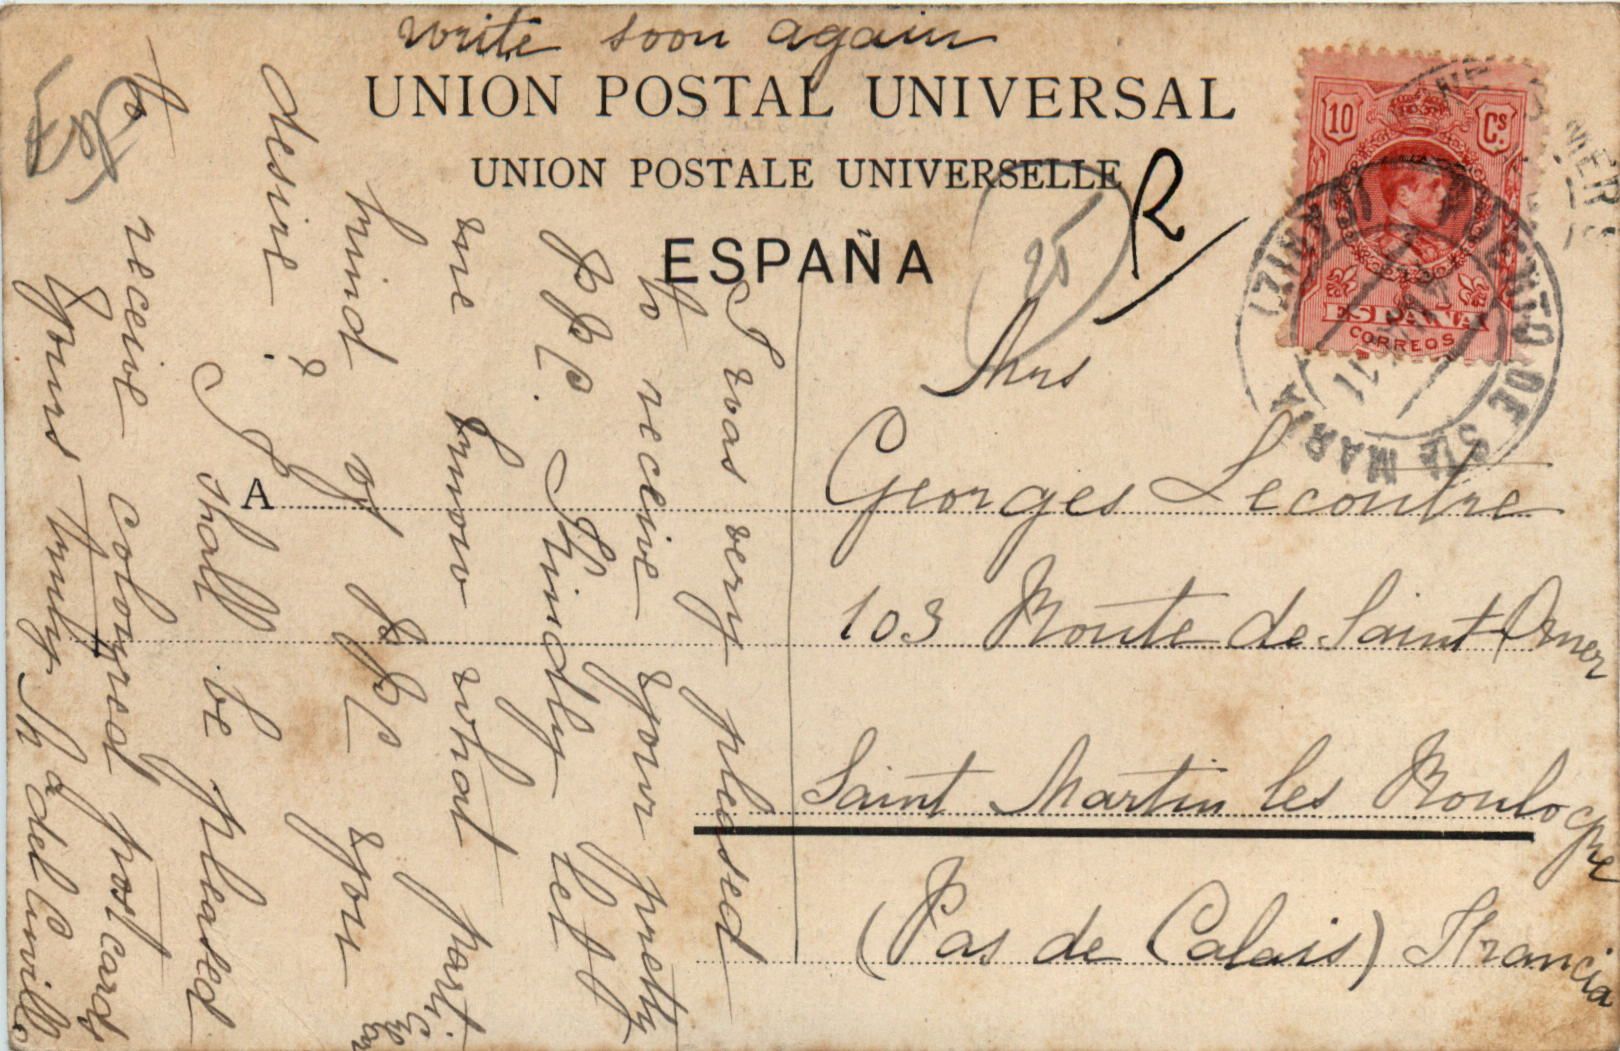 write soon again
UNION POSTAL UNIVERSAL
UNION POSTALE UNIVERSELLE
ESPAÑA
R
25
67
10 Cs.
ESPAÑA
CORREOS
PUERTO DE STA MARIA (CADIZ)
11
A
Mrs
Georges Lecoutre
103 Route de Saint Omer
Saint Martin les Boulogne
(Pas de Calais) Francia
I was very pleased
to receive your pretty
P.P.C. Kindly let
me know what particular
kind of P.P.C you
desire?
I shall be pleased
to receive coloured post cards
Yours truly. Mª del Cuvillo